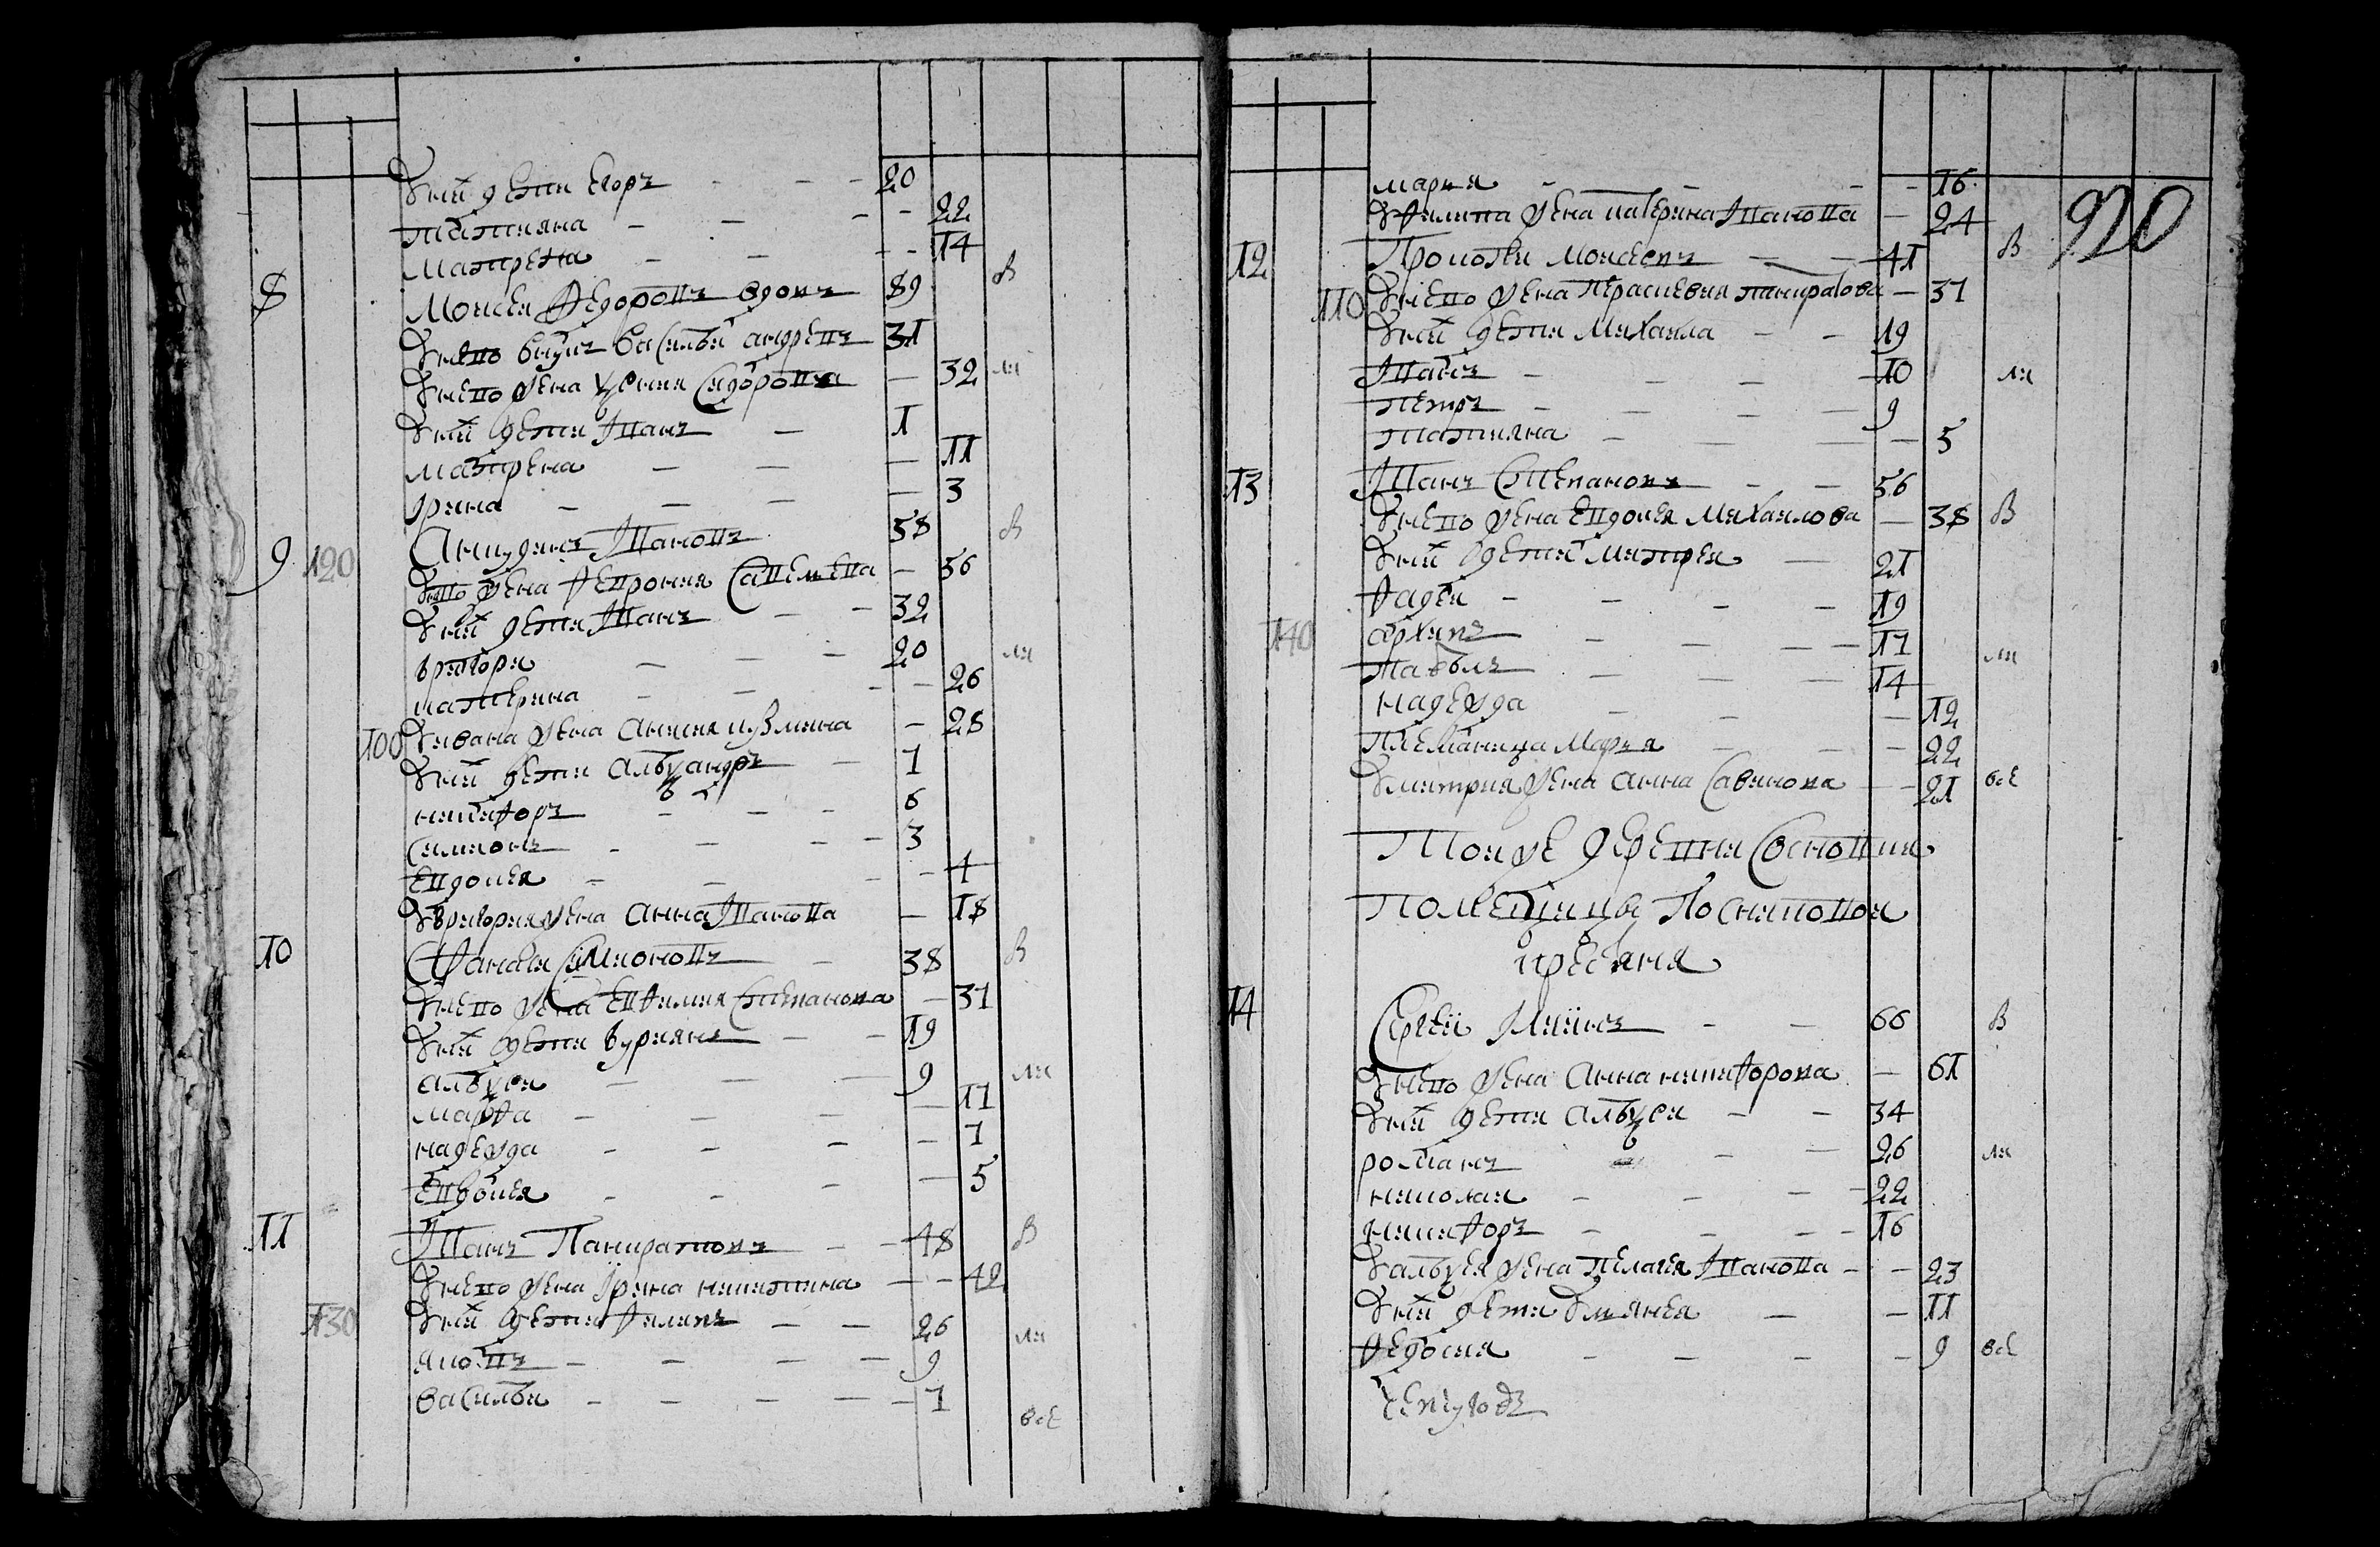 У них дети Егоръ — — — 20
татияна — — — — 22
матрена — — — — 14
8 Моисей Федоровъ вдовъ 89 в
У него внукъ василей андреевъ 31
У него жена Уксиния Сидорова — 32 ли
У них дети Иванъ — 1
матрена — — — 11
Ирина — — — — 3
9 120 Аникудинъ Ивановъ 58 в
У него жена Феврония Савельева — 56
У них дети Иванъ — — 32
григори — — — 20 ли
катерина — — — — 26
100 У ивана жена Аксиния кузмина — 28
У них дети Александръ — 7
никифоръ — — — 6
Симионъ — — — — 3
Евдокея — — — — 4
У григория жена Анна Иванова — 18
10 Афанасей Симионовъ — 38 в
У него жена Евфимия Степанова — 37
У них дети Куриянъ — — 19
алексеи — — — 9 ли
марфа — — — — 17
надежда — — — — 7
Евдокея — — — — 5
11 Иванъ Панкратовъ — — 48 в
У него жена Ирина никитина — — 42
130 У них дети Филипъ — — 26 ли
яковъ — — — — 9
василей — — — — — 7
все
920
марья — — — — 16
У Филипа жена катерина Иванова — 24
12 Прокофеи Моисеевъ — — 41 в
110 У него жена Парасковия панкратова — 37
У них дети Михаила — — 19
Иванъ — — — 10 ли
петръ — — — — 9
татияна — — — — 5
13 Иванъ Степановъ — — 56
У него жена Евдокея Михаилова — 38 в
У них дети митреи — 21
Фадеи — — — — 19
140 архипъ — — — 17
павелъ — — — 14 ли
надежда — — — 12
племяница Марья — — — 22
У митрия жена анна Савинова — — 21 все
Тои же деревни Сосновки
помещицы Посниковои
кресяня
14 Сергеи Микинъ — — 66 в
У него жена Анна никифорова — 61
У них дети алексеи — — 34
романъ — — 26 ли
николаи — — — 22
никифоръ — — — — 16
У алексея жена пелагея Иванова — — 23
У них дети — — 11
Федосия — — — — 9 все